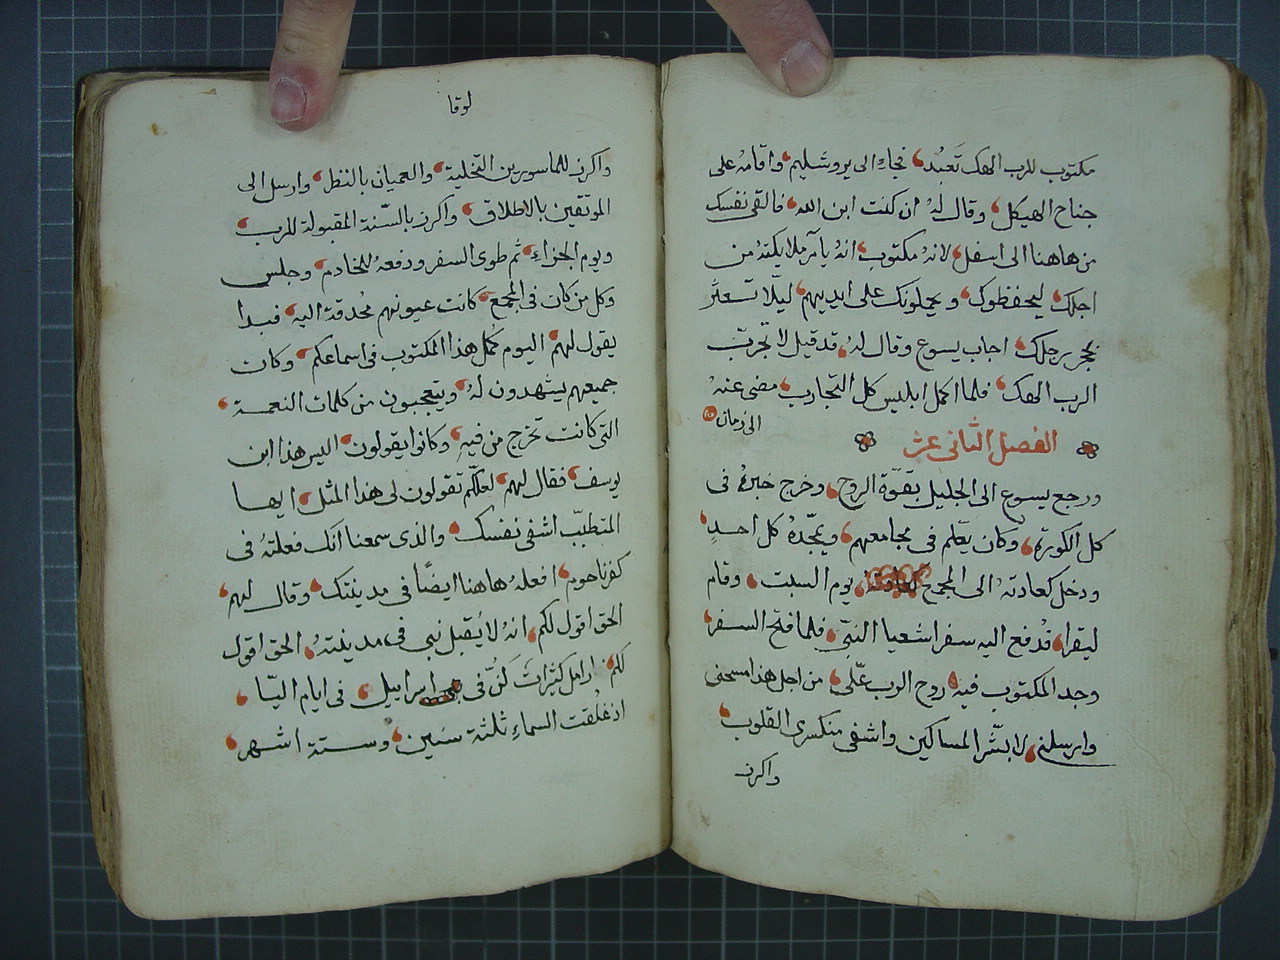 مكتوب للرب الهك تَعبُد، فجاء الى يروشليم، واقامه على
جناح الهيكل، وقال لهُ ان كنت ابن الله، فالقى نفسك
من هاهنا الى اسفل، لانهُ مكتوب، انهُ يامر ملايكتهُ من
اجلك، ليحفظوك، ويحملونك على ايديهم، ليلا تعثر
بحجر برجلك، اجاب يسوع وقال لهُ، قد قيل لا تجرّب
الرب الهك، فلما اكمل ابليس كل التجارب، مضى عنهُ
الى زمان
الفصل الثانى عشر
ورجع يسوع الى الجليل بقوّة الروح، وخرج خبرهُ فى
كل الكورة، وكان يعّلم فى مجامعهم، ويمجّدهُ كل احدٍ،
ودخل كعادتهِ الى المجمع يوم السبت، وقام
ليقرا، فدُفع اليه سفر اشعيا النبّي، فلما فتح السفر،
وجد المكتوب فيه، روح الرب علّى، من اجل هذا مسحنى
وارسلنى، لابشّر المساكين واشفى منكسرى القلوب،
واكرز
لوقا
واكرز للماسورين التخلية، والعميان بالنظر، وارسل الى
الموثقين بالاطلاق، واكرز بالسّنة المقبولة للرب،
ويوم الجزاء، ثم طوى السفر ودفعه للخادم، وجلس
وكل من كان فى المجمع، كانت عيونهم محُدقة اليه، فبدا
يقول لهم، اليوم كمُل هذا المكتوب فى اسماعكم، وكان
جميعهم يشهدون لهُ، ويتعجبون من كلمات النعمة،
التى كانت تخرج من فيهِ، وكانوا يقولون، اليس هذا ابن
يوسف، فقال لهم، لعلّكم تقولون لى هذا المثل، ايها
المتطبّب اشفى نفسك، والذى سمعنا انك فعلتهُ فى
كفرناحوم، افعلهُ هاهنا ايضًا فى مدينتك، وقال لهم،
الحق اقول لكم، انهُ لا يُقبل نبى فى مدينتهُ، الحق اقول
لكم، ارامل كثيرات كُنّ فى اسراييل، فى ايام اليّا،
اذ غلُقت السماءِ ثلثة سنين، وستة اشهر،